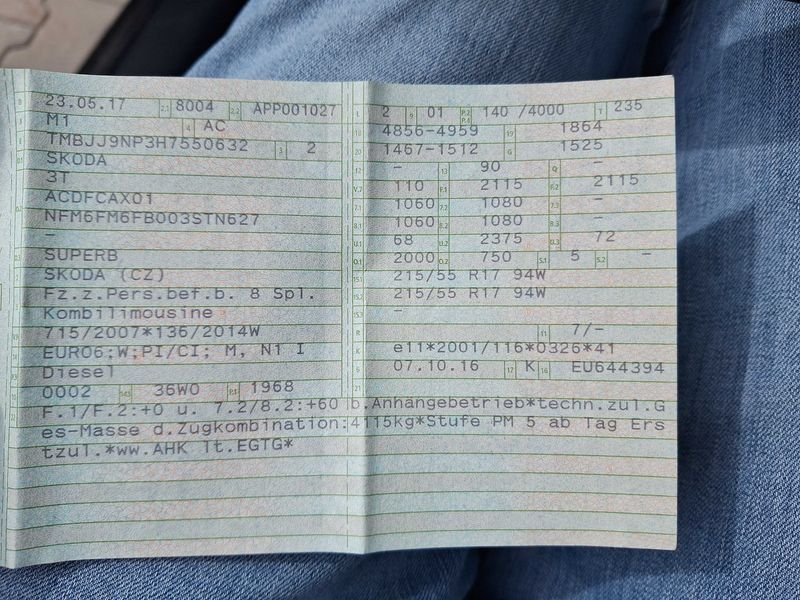 B 23.05.17 2.1 8004 2.2 APP001027
J M1 4 AC
E TMBJJ9NP3H7550632 3 2
D.1 SKODA
3T
ACDFCAX01
D.2 NFM6FM6FB003STN627
–
D.3 SUPERB
2 SKODA (CZ)
5 Fz.z.Pers.bef.b. 8 Spl.
Kombilimousine
715/2007*136/2014W
EURO6;W;PI/CI; M, N1 I
Diesel
0002 14.1 36W0 P.1 1968
L 2 9 01 P.2 P.4 140 /4000 T 235
18 4856-4959 19 1864
20 1467-1512 G 1525
12 – 13 90 Q –
V.7 110 F.1 2115 F.2 2115
7.1 1060 7.2 1080 7.3 –
8.1 1060 8.2 1080 8.3 –
U.1 68 U.2 2375 U.3 72
O.1 2000 O.2 750 S.1 5 S.2 –
15.1 215/55 R17 94W
15.2 215/55 R17 94W
15.3 –
R 11 7/–
K e11*2001/116*0326*41
6 07.10.16 17 K 16 EU644394
21
F.1/F.2:+0 u. 7.2/8.2:+60 b.Anhängebetrieb*techn.zul.G
es-Masse d.Zugkombination:4115kg*Stufe PM 5 ab Tag Ers
tzul.*ww.AHK lt.EGTG*